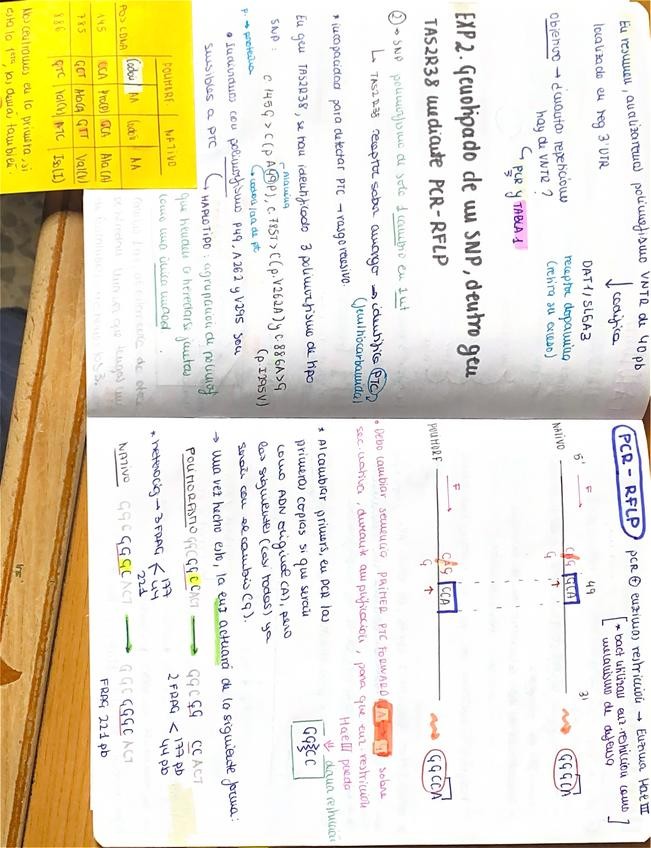 En resumen, analizaremos polimorfismo VNTR de 40 pb
localizado en reg 3'UTR
codifica
DAT1/SL6A3
receptor dopamina
(retira su exceso)
Objetivo → ¿cuántas repeticiones
hay de VNTR?
PCR y TABLA 1
EXP 2. Genotipado de un SNP, dentro gen
TAS2R38 mediante PCR-RFLP
② → SNP polimorfismo de solo 1 cambio en 1 nt
↳ TAS2R38 receptor sabor amargo → identifica (PTC)
(feniltiocarbamida)
* incapacidad para detectar PTC → rasgo recesivo.
En gen TAS2R38, se han identificado 3 polimorfismos de tipo
SNP: c 145G > C (p A49P), c.785T > C (p.V262A) y c 886A > G
(p I295V)
p → proteína
• Individuos con polimorfismo P49, A262 y V295 son
sensibles a PTC
↳ HAPLOTIPO: agrupación de polimorf
que tienden a heredarse juntos
como una única unidad
POLIMORF NATIVO
POS CDNA Codón AA Codón AA
145 CCA Pro(P) GCA Ala(A)
785 GCT Ala(A) GTT Val(V)
886 GTC Val(V) ATC Ile(I)
Nos centramos en la primera, si
está la 1era, las demás también
PCR - RFLP
PCR ⊕ enzimas restricción → Enzima Hae III
[* bact utilizan enz restricción como
mecanismo de defensa]
49
NATIVO 5' 3'
F
CAG GCA
G
GGGCA
POLIMORF
F
CAG CCA
G
GGCCA
• Debo cambiar secuencia PRIMER PTC FORWARD A → G sobre
sec nativa, durante amplificación, para que enz. restricción
Hae III pueda
diana restricción
GG CC
* Al cambiar primers, en PCR las
primeras copias si que serán
como ADN original (A), pero
las siguientes (casi todas) ya
serán con ese cambio (G).
→ Una vez hecho esto, la enz actuará de la siguiente forma:
POLIMORFISMO GGCGGCCACT → GGCGG CCACT
2 FRAG < 177 pb
44 pb
* heterocig → 3 FRAG < 177
44
221
NATIVO GGCGGGCACT → GGCGGGCACT
FRAG 221 pb